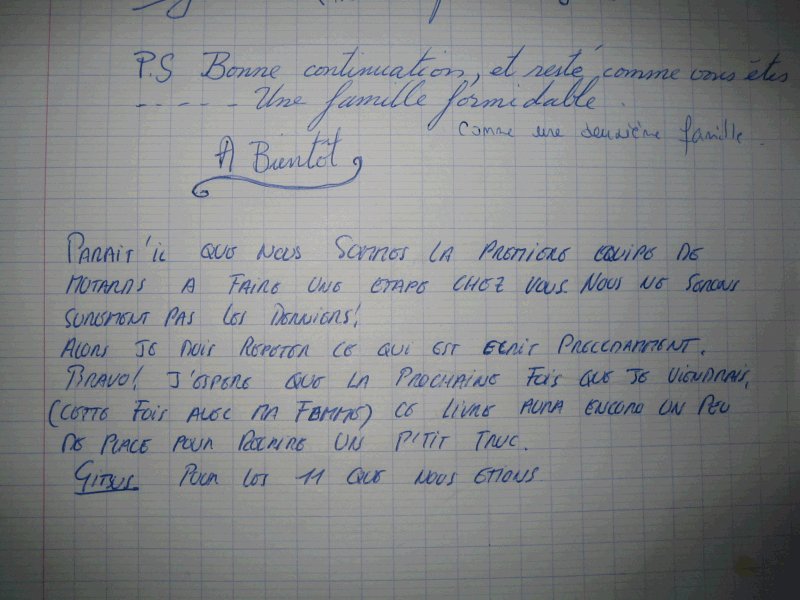 P.S Bonne continuation, et resté comme vous êtes
----- Une famille formidable.
Comme une deuxième famille.
A Bientôt
PARAIT'IL QUE NOUS SOMMES LA PREMIERE EQUIPE DE
MOTARDS A FAIRE UNE ETAPE CHEZ VOUS. NOUS NE SERONS
SUREMENT PAS LES DERNIERS!
ALORS JE DOIS REPETER CE QUI EST ECRIS PRECEDAMMENT.
BRAVO! J'ESPERE QUE LA PROCHAINE FOIS QUE JE VIENDRAIS,
(CETTE FOIS AVEC MA FEMME) CE LIVRE AURA ENCORE UN PEU
DE PLACE POUR ECRIRE UN P'TIT TRUC.
POUR LES 11 QUE NOUS ETIONS